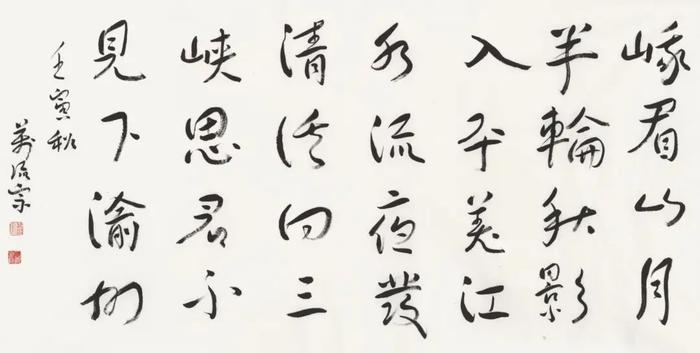 峨眉山月
半輪秋影
入平羌江
水流夜發
清溪向三
峽思君不
見下渝州
壬寅秋